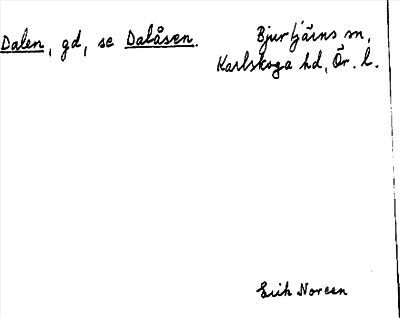 Dalen, gd, se Dalåsen.
Bjurtjärns sn,
Karlskoga hd, Ör. l.
Erik Noreen